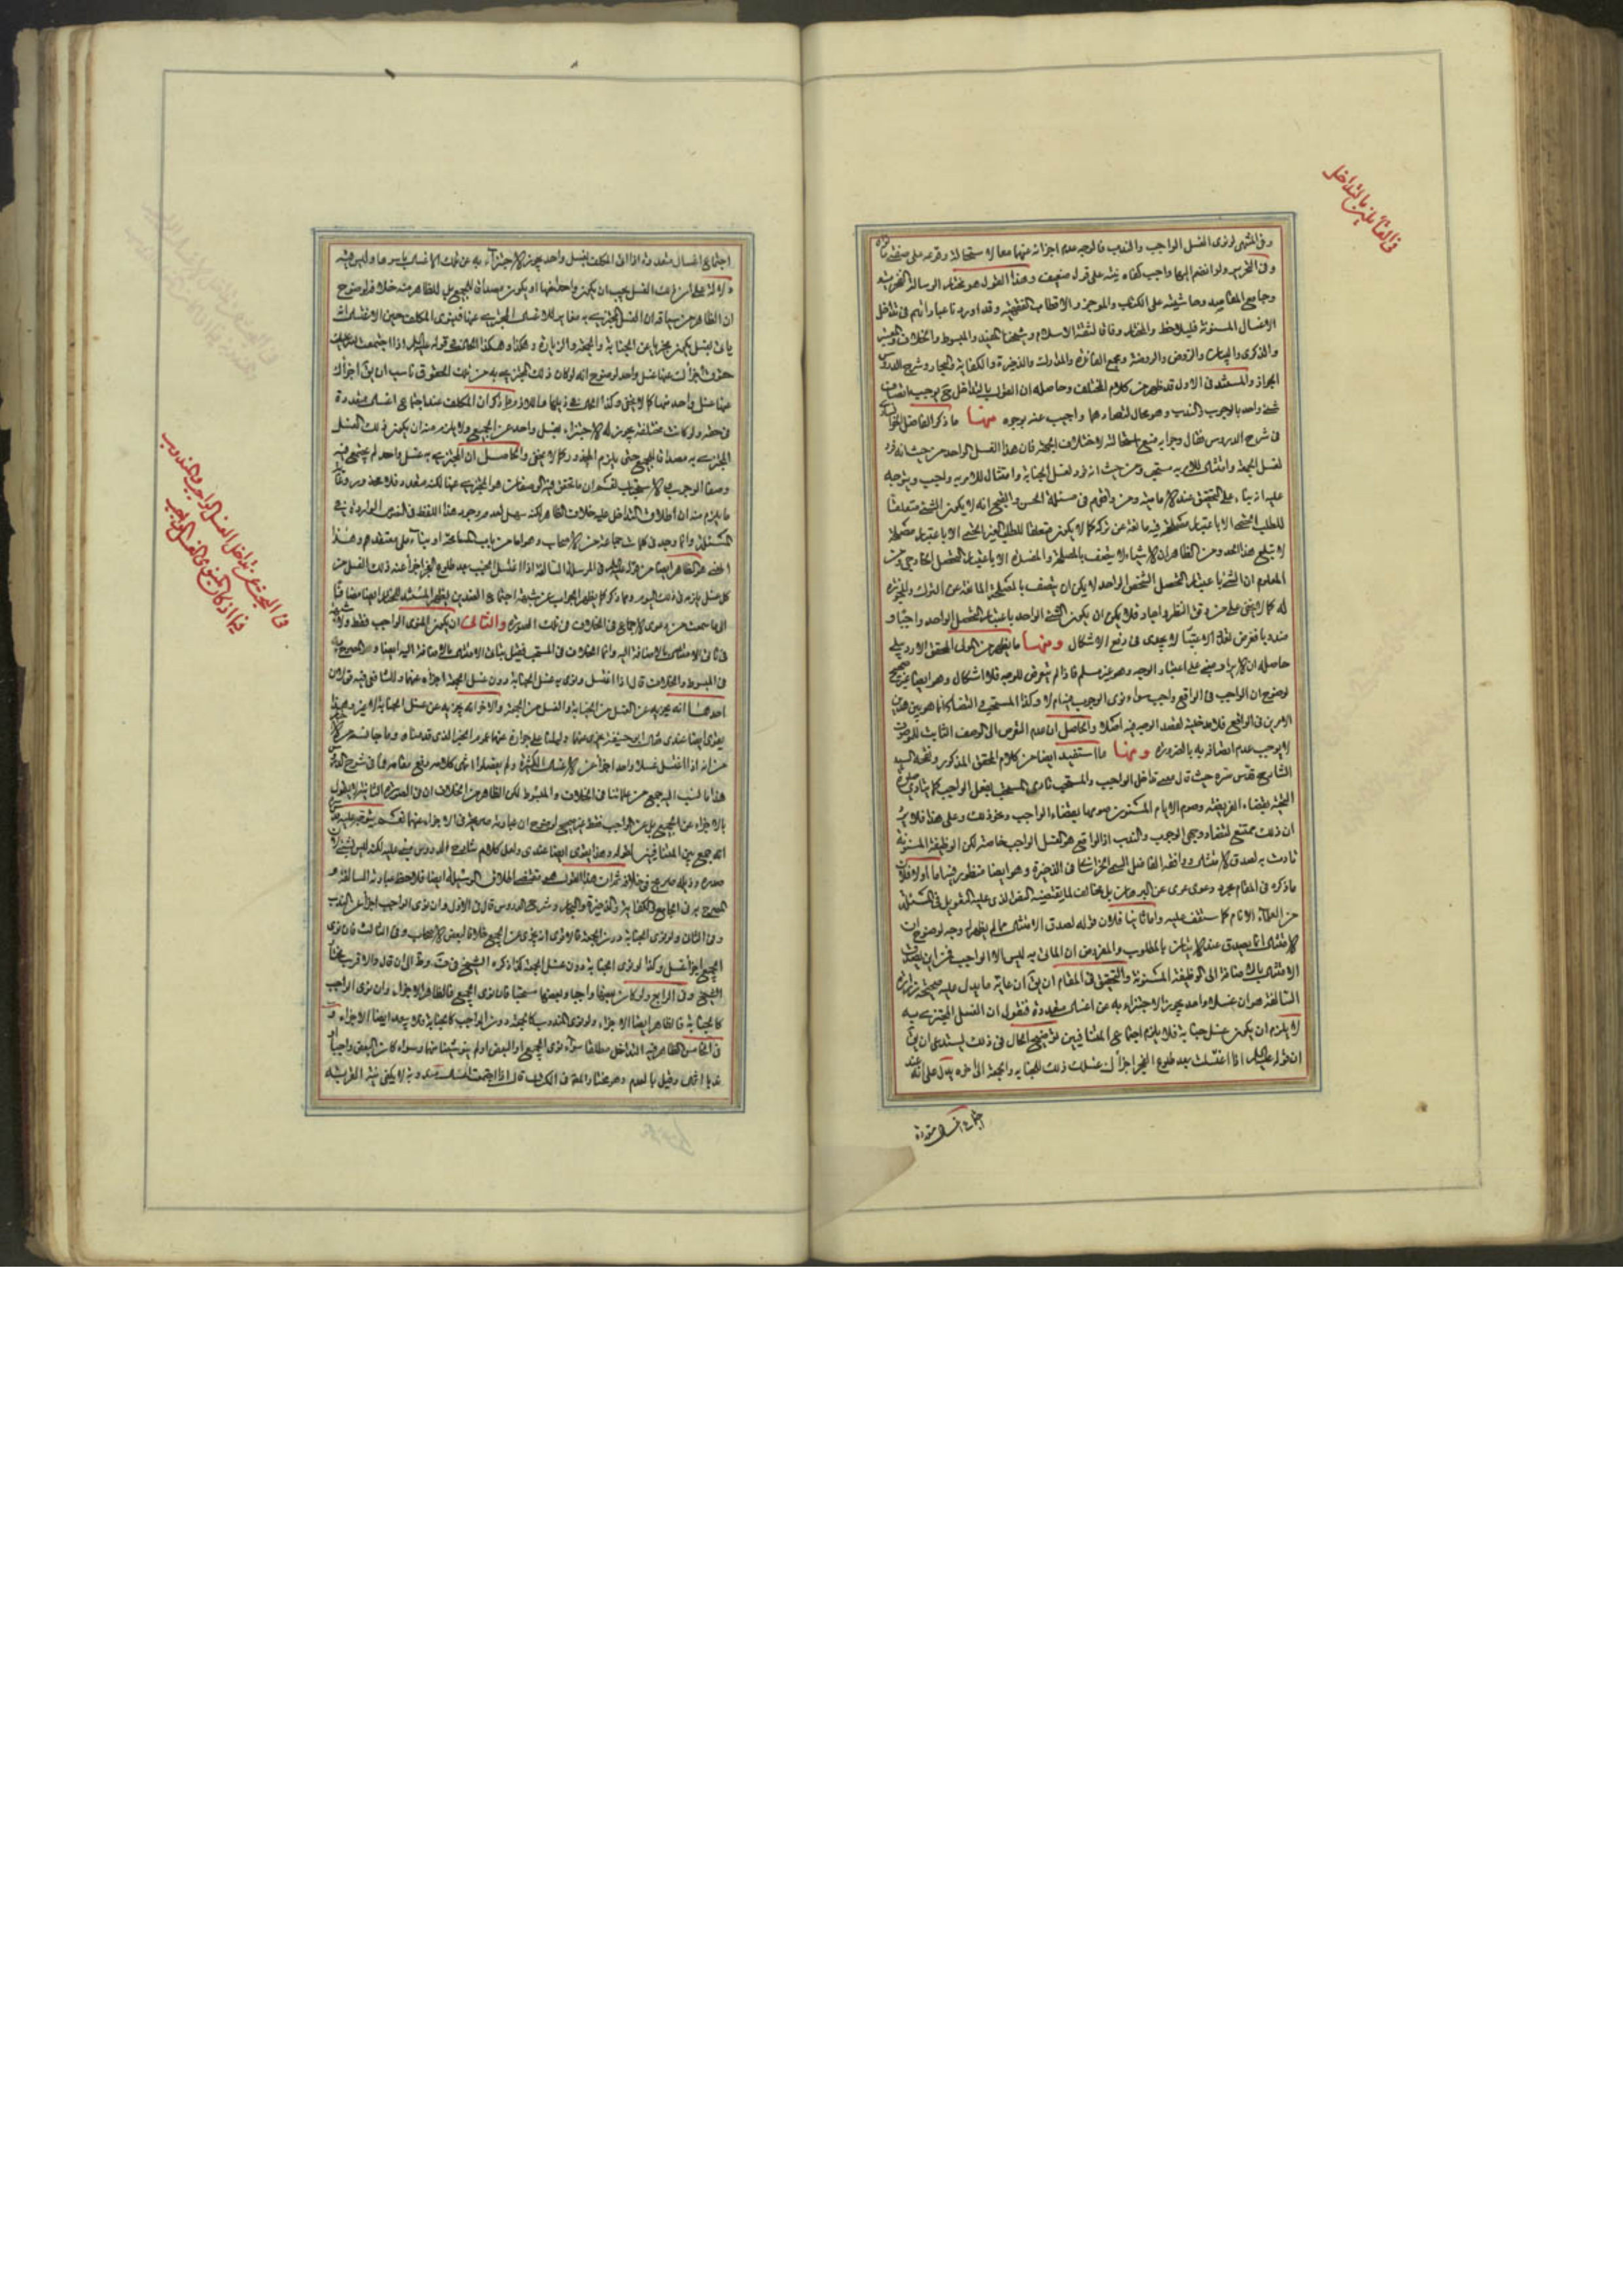 في القائلين بالتداخل
وفي المنتهى لو نوى الغسل الواجب والندب فالوجه عدم اجزائه عنهما معا لاستحالة وقوعه على صفتي
وفي التحرير ولو انضم اليها واجب كفاه نيته على قول ضعيف وهذا القول هو مختار الرسالة الفخرية
وجامع المقاصد وحاشيته على الكتاب والموجز والاقطاب الفقهية وقد اوردنا عباراتهم في تداخل
الاغسال المسنونة فليلاحظ والمختار وفاقا لثقة الاسلام وشيخنا المفيد والمبسوط والخلاف
والذكرى والبيان والروض والروضة ومجمع الفائدة والمدارك والذخيرة والكفاية والبحار وشرح الدروس
الجواز والمستند في الاول قد ظهر من كلام المختلف وحاصله ان القول بالتداخل يوجب اتصاف
شيء واحد بالوجوب والندب وهو محال لتضادهما واجيب عنه بوجوه منها ما ذكر الفاضل
في شرح الدروس فقال وجوابه منع استحالته لاختلاف الجهة فان هذا الغسل الواحد من حيث انه فرد
لغسل الجمعة وامتثال للامر به مستحب ومن حيث انه فرد لغسل الجنابة وامتثال للامر به واجب ويتوجه
عليه انه بناء على التحقيق عند الامامية ومن وافقهم في مسئلة الحسن والقبح انه لا يكون الشيء متعلقا
للطلب الحتمي الا باعتبار مصلحة فيه مانعة عن تركه كما لا يكون متعلقا للطلب الغير الحتمي الا باعتبار مصلحة
لا تبلغ هذا الحد ومن الظاهر ان الاشياء لا يتصف بالمصلحة والمفسدة الا باعتبار التحصل الخارجي ومن
المعلوم ان الشيء باعتبار التحصل الشخصي الواحد لا يمكن ان يتصف بالمصلحة المانعة عن الترك والمجوزة
له كما لا يخفى على من دقق النظر واجاد فلا يمكن ان يكون الشيء الواحد باعتبار التحصل الواحد واجبا و
مندوبا فغرض تغاير الاعتبار لا يجدي في دفع الاشكال ومنها ما يظهر من المولى المحقق الاردبيلي
حاصله ان الايراد مبني على اعتبار الوجه وهو غير مسلم فاذا لم يتعرض للوجه فلا اشكال وهو ايضا غير صحيح
لوضوح ان الواجب في الواقع واجب سواء نوى الوجوب ام لا وكذا المستحب والتضاد انما هو بين هذين
الامرين في الواقع فلا مدخلية لقصد الوجه فيه اصلا والحاصل ان عدم التعرض الى الوصف الثابت للموصوف
لا يوجب عدم اتصافه به بالضرورة ومنها ما استفيد ايضا من كلام المحقق المذكور وتبعه السيد
الشارح قدس سره حيث قال معنى تداخل الواجب والمستحب تادي المستحب بفعل الواجب كما يتادى صلوة
التحية بقضاء الفريضة وصوم الايام المسنون صومها بقضاء الواجب ونحو ذلك وعلى هذا فلا يرد
ان ذلك ممتنع لتضاد وجهي الوجوب والندب اذ الواقع هو الغسل الواجب خاصة لكن الوظيفة المسنونة
تادت به لصدق الامتثال ووافقه الفاضل السبزواري في الذخيرة وهو ايضا منظور فيه اما اولا فلان
ما ذكره في المقام مجرد دعوى عرى عن البرهان بل مخالف لما يقتضيه النص الذي عليه التعويل في المسئلة
من العلماء الاعلام كما ستقف عليه واما ثانيا فلان قوله لصدق الامتثال مما لم يظهر له وجه لوضوح ان
الامتثال انما يصدق عند الاتيان بالمطلوب والمفروض ان الماتي به ليس الا الواجب فمن اين يصدق
الامتثال بالاضافة الى الوظيفة المسنونة والتحقيق في المقام ان يق ان غاية ما يدل عليه صحيحة زرارة
السالفة هو ان غسلا واحدا يجوز الاجتزاء به عن اغسال متعددة فنقول ان الغسل المجتزى به
لا يلزم ان يكون غسل جنابة فلا يلزم اجتماع المتنافيين توضيح الحال في ذلك يستدعي ان يق
ان قوله عليه السلام اذا اغتسلت بعد طلوع الفجر اجزأك غسلك ذلك للجنابة والجمعة الى اخره يدل على انه عند
اجتماع اغسال متعددة
اجتماع اغسال متعددة اذا اتى المكلف بغسل واحد يجوز الاجتزاء به عن تلك الاغسال باسرها وليس فيه
دلالة على ان ذلك الغسل يجب ان يكون واحدا منها او يكون مصداقا للجميع بل الظاهر منه خلافه لوضوح
ان الظاهر من سياقه ان الغسل المجتزى به مغاير للاغسال المجتزى عنها فينوي المكلف حين الاغتسال
ياتي بغسل يكون مجزيا عن الجنابة والجمعة والزيارة وهكذا وهكذا الحال في قوله عليه السلام اذا اجتمعت لله عليك
حقوق اجزأك عنها غسل واحد لوضوح انه لو كان ذلك المجتزى به من تلك الحقوق ناسب ان يق اجزأك
عنها غسل واحد منها كما لا يخفى وكذا الحال في ذيلها
في حقه ولو كانت مختلفة يجوز له الاجتزاء بغسل واحد عن الجميع ولا يلزم منه ان يكون ذلك الغسل
المجتزى به مصداقا للجميع حتى يلزم المحذور كما لا يخفى والحاصل ان المجتزى به غسل واحد لم يجتمع فيه
وصفا الوجوب والاستحباب
ما يلزم منه ان اطلاق التداخل عليه خلاف الظاهر لكنه سهل لعدم ورود هذا اللفظ في النصوص الواردة في
المسئلة وانما وجد في كلمات جماعة من الاصحاب وهو اما من باب المسامحة او بناء على معتقدهم وهذا
المعنى هو الظاهر ايضا من قوله عليه السلام في المرسلة السالفة اذا اغتسل الجنب بعد طلوع الفجر اجزأ عنه ذلك الغسل من
كل غسل يلزمه في ذلك اليوم ومما ذكر كما يظهر الجواب عن شبهة اجتماع الضدين يظهر المستند للمختار ايضا مضافا
الى ما سمعت من دعوى الاجماع في الخلاف في تلك الصورة والثاني ان يكون المنوي الواجب فقط
في الامتثال بالاضافة اليه وانما الخلاف في المستحب فقيل بثبات الامتثال بالاضافة اليه ايضا وهو الصريح
في المبسوط والخلاف قال اذا اغتسل ونوى به غسل الجنابة دون غسل الجمعة اجزأه عنهما وللشافعي فيه قولان
احدهما انه يجزيه عن الغسل من الجنابة والغسل من الجمعة والاخر انه يجزيه عن غسل الجنابة لا غير
ايضا عندي وقال ابو حنيفة يجزي عنهما دليلنا على جوازه عنهما عموم الخبر الذي قدمناه وما جانسه من
من انه اذا اغتسل غسلا واحدا اجزأه عن الاغسال الكثيرة ولم يفصلوا انتهى كلامه رفع مقامه
هذا ما نسب اليه جمع من علمائنا في الخلاف والمبسوط لكن الظاهر من الخلاف ان في الصورة الثانية
بالاجزاء عن الجميع بل عن الواجب فقط غير صحيح لوضوح ان عبارته صريحة في الاجزاء عنهما
صدره وذيله صريح في خلافه
المصرح به في الجامع والكفاية والذخيرة والبحار وشرح الدروس قال في الاول وان نوى الواجب اجزأ عن الندب
وفي الثاني ولو نوى الجنابة دون الجمعة فالاقوى انه يجزي عن الجميع خلافا لبعض الاصحاب وفي الثالث فان نوى
الجميع اجزأ غسل وكذا لو نوى الجنابة دون غسل الجمعة كذا ذكره الشيخ في ف و ط الى ان قال والاقرب مختار
الشيخ وفي الرابع ولو كان بعضها واجبا وبعضها مستحبا فان نوى الجميع فالظاهر الاجزاء وان نوى الواجب
كالجنابة فالظاهر ايضا الاجزاء ولو نوى المندوب كالجمعة دون الواجب كالجنابة فلا يبعد ايضا الاجزاء و
في الخامس الظاهر فيه التداخل مطلقا سواء نوى الجميع او البعض او لم ينو شيئا منها وسواء كان البعض واجبا او
ندبا انتهى وقيل بالعدم وهو مختار المعتبر في الكتاب قال اذا اجتمعت اغسال مندوبة لا يكفي نية القربة
في البحث عن تداخل الغسل الواجب والمندوب
فيما اذا كان المنوي الغسل الواجب